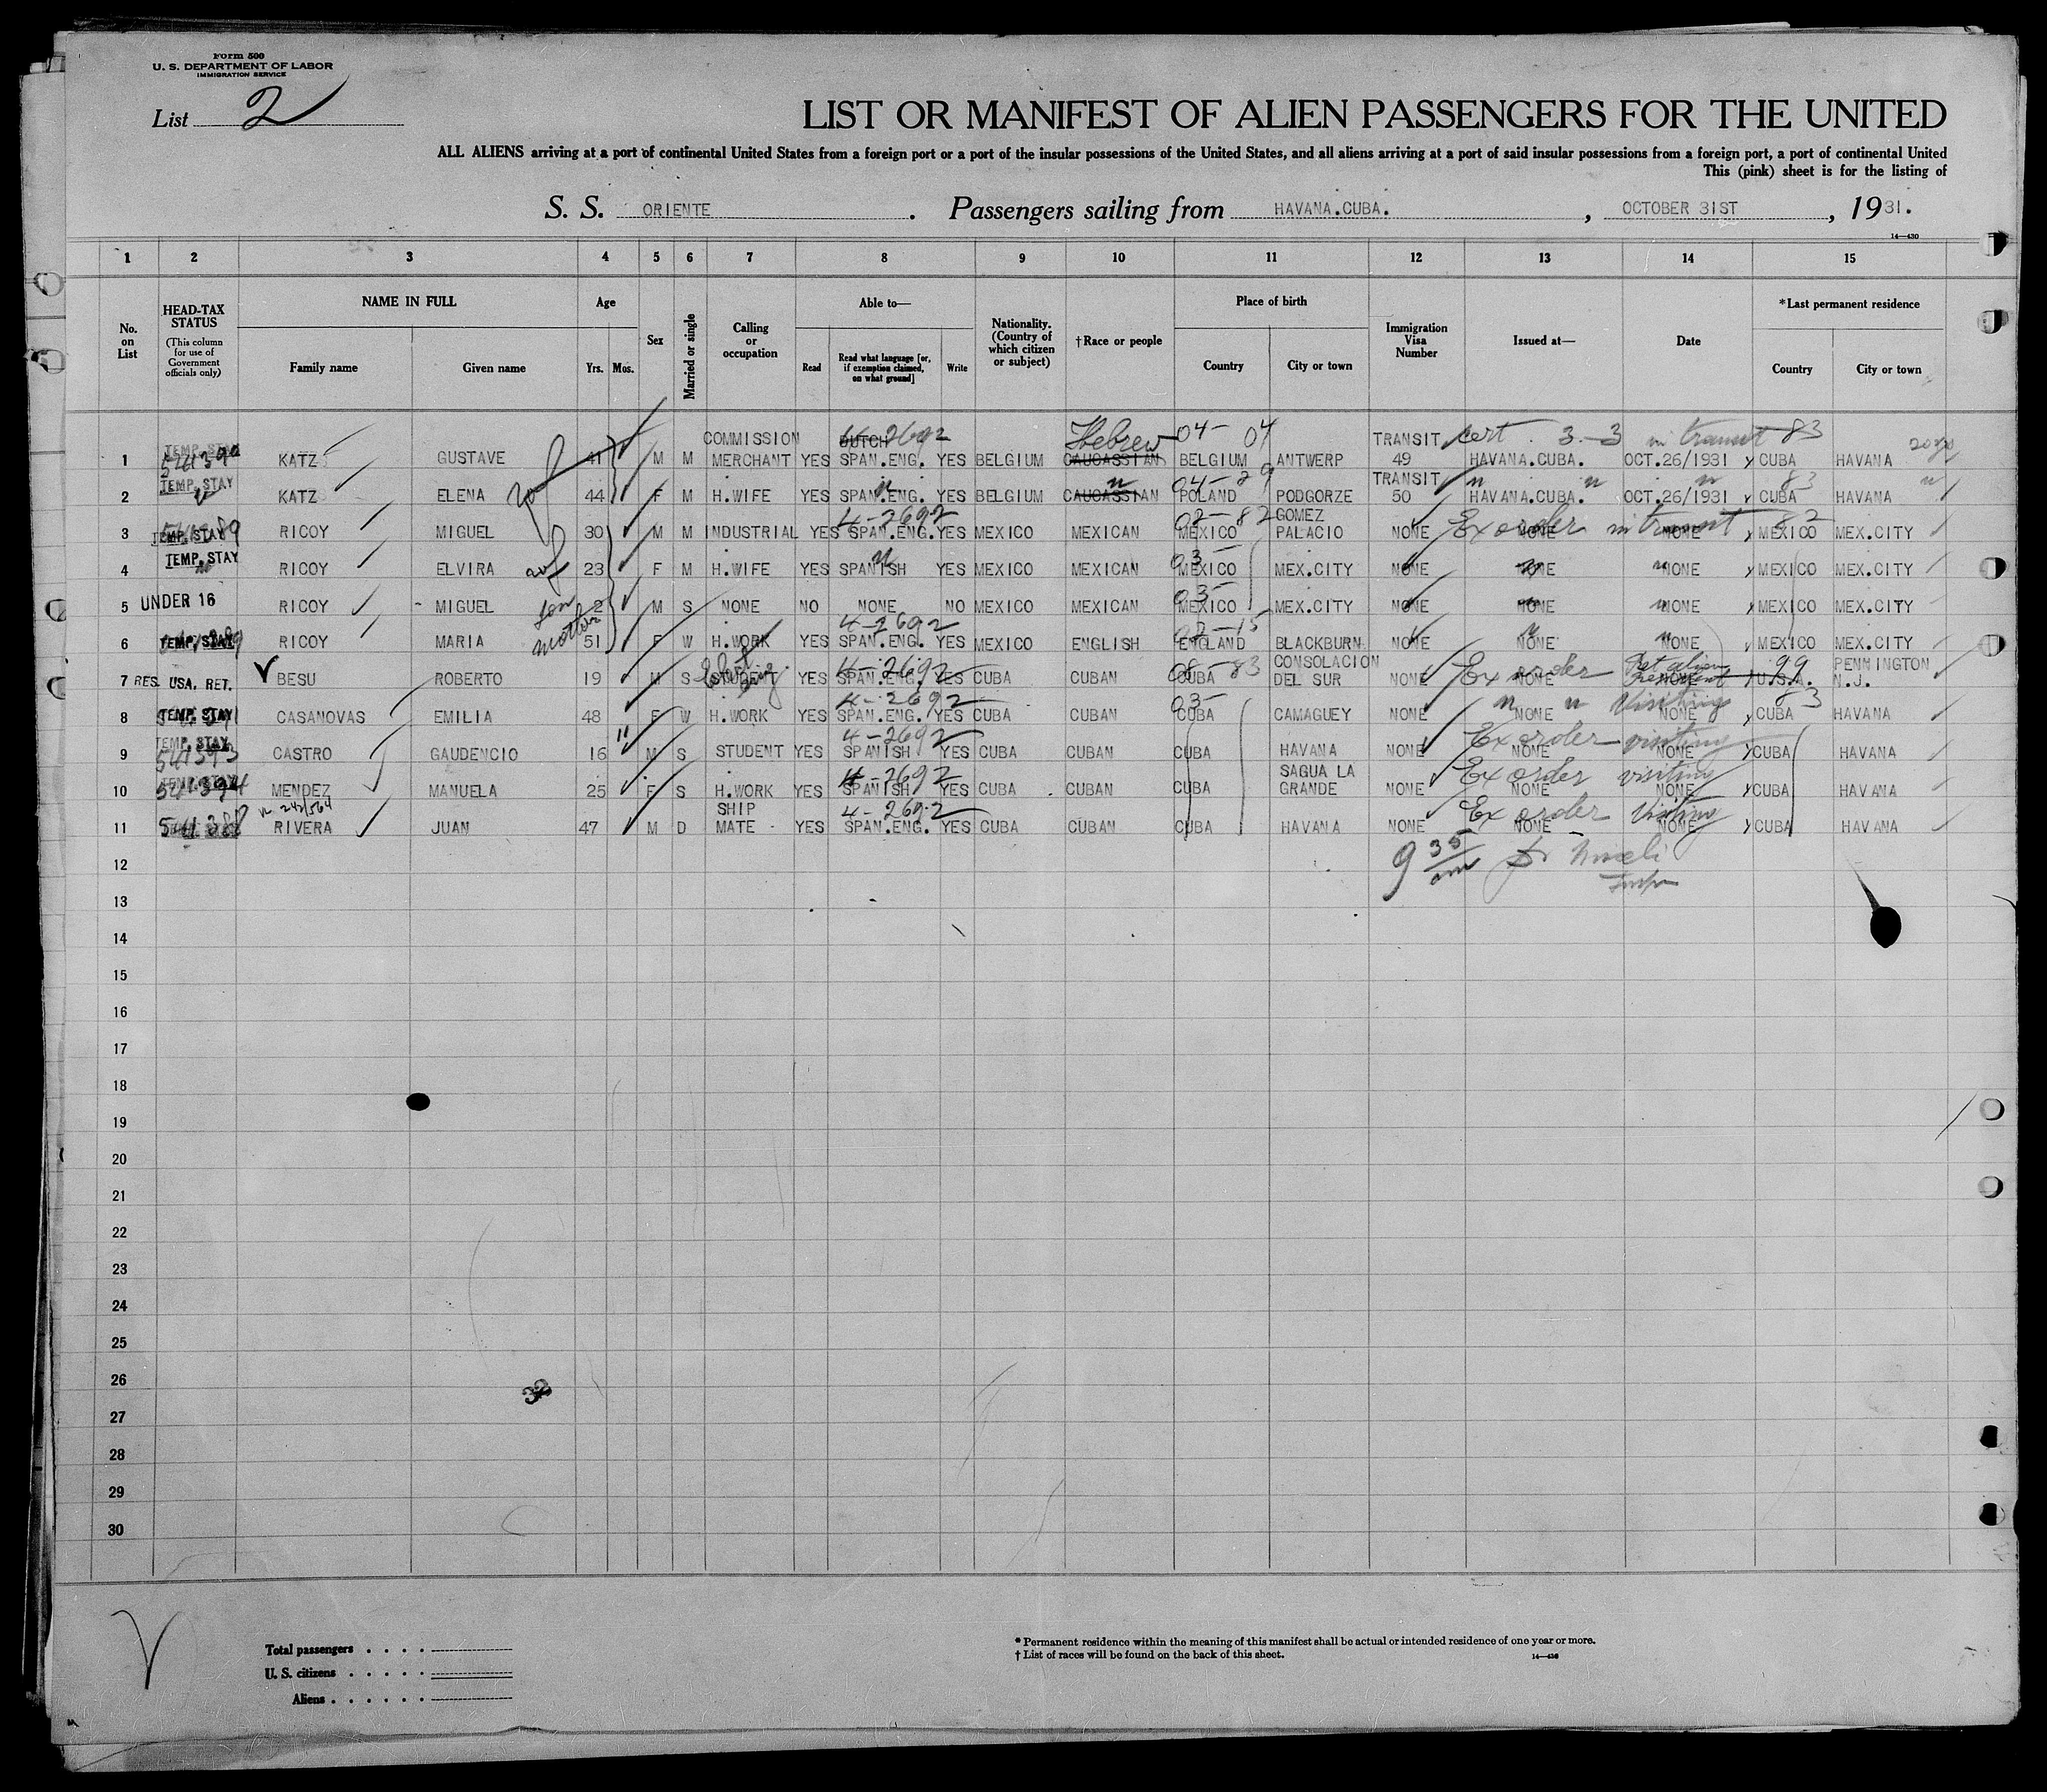 Form 500
U. S. DEPARTMENT OF LABOR
IMMIGRATION SERVICE
List 2
LIST OR MANIFEST OF ALIEN PASSENGERS FOR THE UNITED
ALL ALIENS arriving at a port of continental United States from a foreign port or a port of the insular possessions of the United States, and all aliens arriving at a port of said insular possessions from a foreign port, a port of continental United
This (pink) sheet is for the listing of
S. S. ORIENTE. Passengers sailing from HAVANA.CUBA., OCTOBER 31ST, 1931.
14—430
1 2 3 4 5 6 7 8 9 10 11 12 13 14 15
No. on List
HEAD-TAX STATUS (This column for use of Government officials only)
NAME IN FULL Family name Given name
Age Yrs. Mos.
Sex
Married or single
Calling or occupation
Able to— Read Read what language [or, if exemption claimed, on what ground] Write
Nationality. (Country of which citizen or subject)
†Race or people
Place of birth Country City or town
Immigration Visa Number
Issued at—
Date
*Last permanent residence Country City or town
TEMP. STAY COMMISSION DUTCH Hebrew 04- 04 TRANSIT cert. 3-3 in transit 83
1 KATZ GUSTAVE 41 M M MERCHANT YES SPAN.ENG. YES BELGIUM CAUCASSIAN BELGIUM ANTWERP 49 HAVANA.CUBA. OCT.26/1931 CUBA HAVANA
TEMP. STAY 04-29 TRANSIT 83
2 KATZ ELENA 44 F M H.WIFE YES SPAN.ENG. YES BELGIUM CAUCASSIAN POLAND PODGORZE 50 HAVANA.CUBA. OCT.26/1931 CUBA HAVANA
4-2692 02-82 GOMEZ Ex order in transit 82
3 TEMP. STAY RICOY MIGUEL 30 M M INDUSTRIAL YES SPAN.ENG. YES MEXICO MEXICAN MEXICO PALACIO NONE NONE NONE MEXICO MEX.CITY
TEMP. STAY 03-
4 RICOY ELVIRA 23 F M H.WIFE YES SPANISH YES MEXICO MEXICAN MEXICO MEX.CITY NONE NONE NONE MEXICO MEX.CITY
5 UNDER 16 RICOY MIGUEL son 2 M S NONE NO NONE NO MEXICO MEXICAN MEXICO MEX.CITY NONE NONE NONE MEXICO MEX.CITY
4-2692
6 TEMP. STAY RICOY MARIA mother 51 F W H.WORK YES SPAN.ENG. YES MEXICO ENGLISH ENGLAND BLACKBURN NONE NONE NONE MEXICO MEX.CITY
4-2692 08-83 CONSOLACION Ex order 99 PENNINGTON
7 RES. USA. RET. BESU ROBERTO 19 M S STUDENT YES SPAN.ENG. YES CUBA CUBAN CUBA DEL SUR NONE NONE NONE U.S.A. N.J.
4-2692 03- Visiting 83
8 TEMP. STAY CASANOVAS EMILIA 48 F W H.WORK YES SPAN.ENG. YES CUBA CUBAN CUBA CAMAGUEY NONE NONE NONE CUBA HAVANA
TEMP. STAY 11 4-2692 Ex order visiting
9 541393 CASTRO GAUDENCIO 16 M S STUDENT YES SPANISH YES CUBA CUBAN CUBA HAVANA NONE NONE NONE CUBA HAVANA
4-2692 SAGUA LA Ex order visiting
10 541394 MENDEZ MANUELA 25 F S H.WORK YES SPANISH YES CUBA CUBAN CUBA GRANDE NONE NONE NONE CUBA HAVANA
SHIP 4-2692 Ex order Visiting
11 541388 RIVERA JUAN 47 M D MATE YES SPAN.ENG. YES CUBA CUBAN CUBA HAVANA NONE NONE NONE CUBA HAVANA
12 9 35 am
13
14
15
16
17
18
19
20
21
22
23
24
25
26
27
28
29
30
32
Total passengers
U. S. citizens
Aliens
* Permanent residence within the meaning of this manifest shall be actual or intended residence of one year or more.
† List of races will be found on the back of this sheet.
14—430